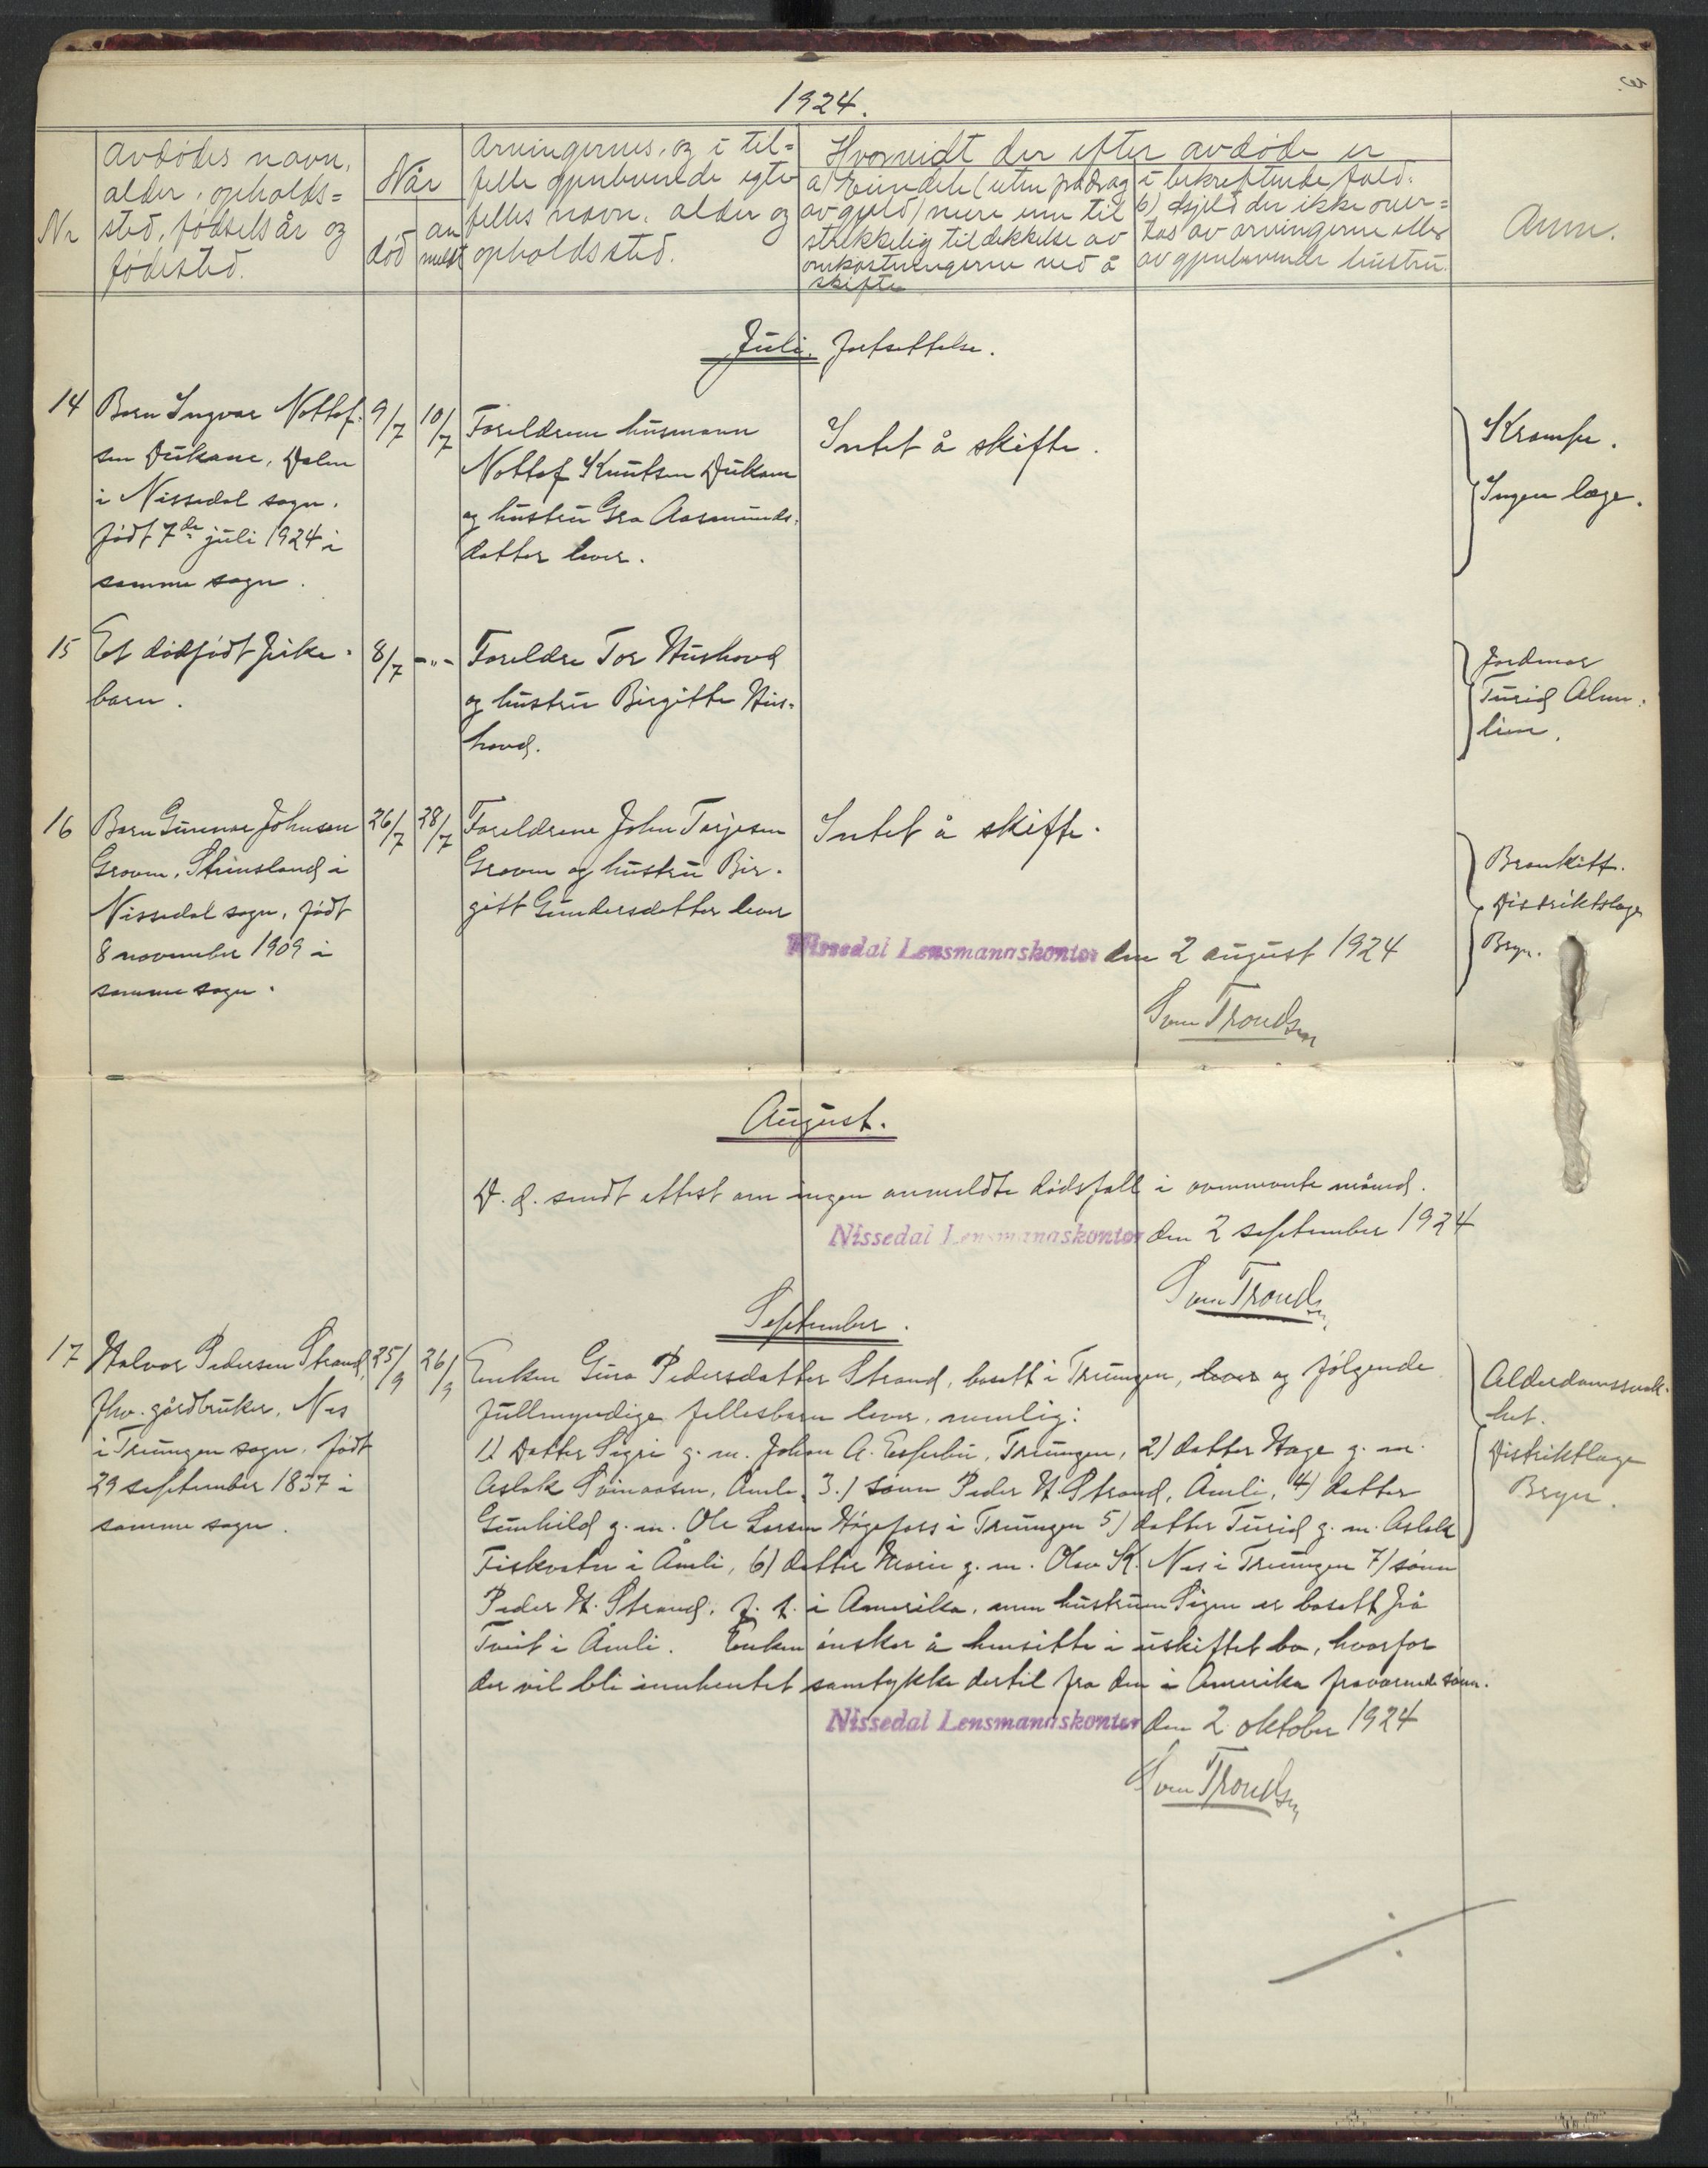 1924.
Nr
Avdødes navn,
alder, opholds=
sted, fødselsår og
fødested.
Når
død
an
meldt
Arvingernes, og i til=
felle gjenlevende egte-
felles navn, alder og
opholdssted.
Hvorvidt der efter avdøde er
a) Eiendele (uten fradrag
av gjeld) mere enn til
strekkelig til dekkelse av
omkostningerne ved å
skifte
i bekreftende fald:
b) Gjeld der ikke over=
tas av arvingerne eller
av gjenlevende hustru.
Anm.
Juli. fortsettelse.
14
Barn Ingvar Nottof-
sen Dukane, Dalen
i Nissedal sogn.
født 7de juli 1924 i
samme sogn.
9/7
10/7
Foreldrene husmann
Nottof Knutsen Dukane
og hustru Gro Aasmunds-
datter lever.
Intet å skifte.
Krampe.
Ingen læge.
15
Et dødfødt pike-
barn.
8/7
-"-
Foreldre Tor Hushovd
og hustru Birgitte Hus-
hovd.
Jordmor
Turid Alme-
lien.
16
Barn Gunnar Johnsen
Groven, Stensland i
Nissedal sogn, født
8 november 1909 i
samme sogn.
26/7
28/7
Foreldrene John Torjesen
Groven og hustru Bir-
gitt Gundersdatter lever
Intet å skifte.
Bronkitt.
Distriktslæge
Bryn.
Nissedal Lensmannskontor den 2 august 1924
Sven Trondsen
August.
D. d. sendt attest om ingen anmeldte dødsfall i ovennevnte måned.
Nissedal Lensmannskontor den 2 september 1924
Sven Trondsen
September.
17
Halvor Pedersen Strand,
fhv. gårdbruker, Nes
i Treungen sogn, født
29 september 1837 i
samme sogn.
25/9
26/9
Enken Guro Pedersdatter Strand, bosatt i Treungen, lever og følgende
fullmyndige fellesbarn lever, nemlig:
1) Datter Sigri g. m. Johan A. Espebu, Treungen, 2) datter Hage g. m.
Aslak Svinaasen, Åmli, 3.) sønn Peder H. Strand, Åmli, 4) datter
Gunhild g. m. Ole Larsen Høgefoss i Treungen 5) datter Turid g. m. Aslak
Fiskvatn i Åmli, 6) datter Marie g. m. Olav K. Nes i Treungen 7) sønn
Peder H. Strand, f. t. i Amerika, men hustruen Signe er bosatt på
Tveit i Åmli. Enken ønsker å hensitte i uskiftet bo, hvorfor
der vil bli innhentet samtykke dertil fra den i Amerika fraværende sønn.
Alderdomssvak-
het.
Distriktlæge
Bryn.
Nissedal Lensmannskontor den 2 oktober 1924
Sven Trondsen